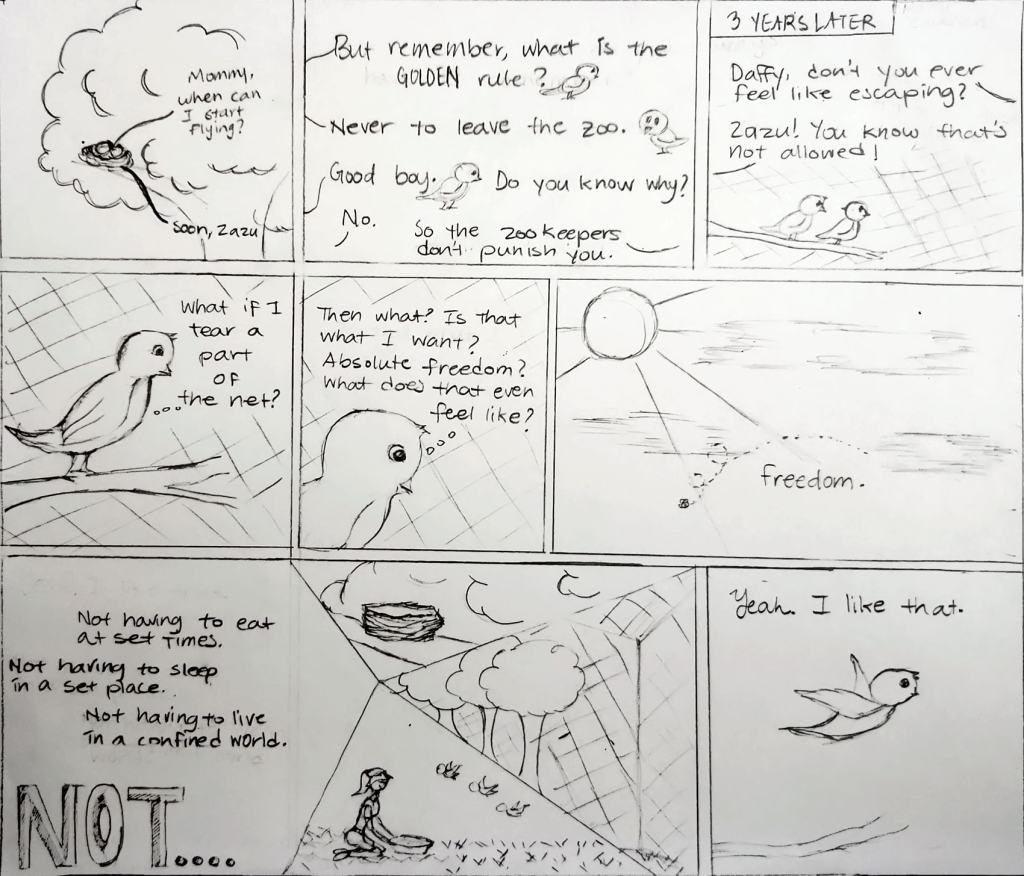 Mommy,
when can
I start
flying?
Soon, Zazu
But remember, what is the
GOLDEN rule?
Never to leave the zoo.
Good boy. Do you know why?
No.
So the zookeepers
don't punish you.
3 YEARS LATER
Daffy, don't you ever
feel like escaping?
Zazu! You know that's
not allowed!
What if I
tear a
part
OF
the net?
Then what? Is that
what I want?
Absolute freedom?
What does that even
feel like?
freedom.
Not having to eat
at set times.
Not having to sleep
in a set place.
Not having to live
in a confined world.
NOT....
Yeah. I like that.